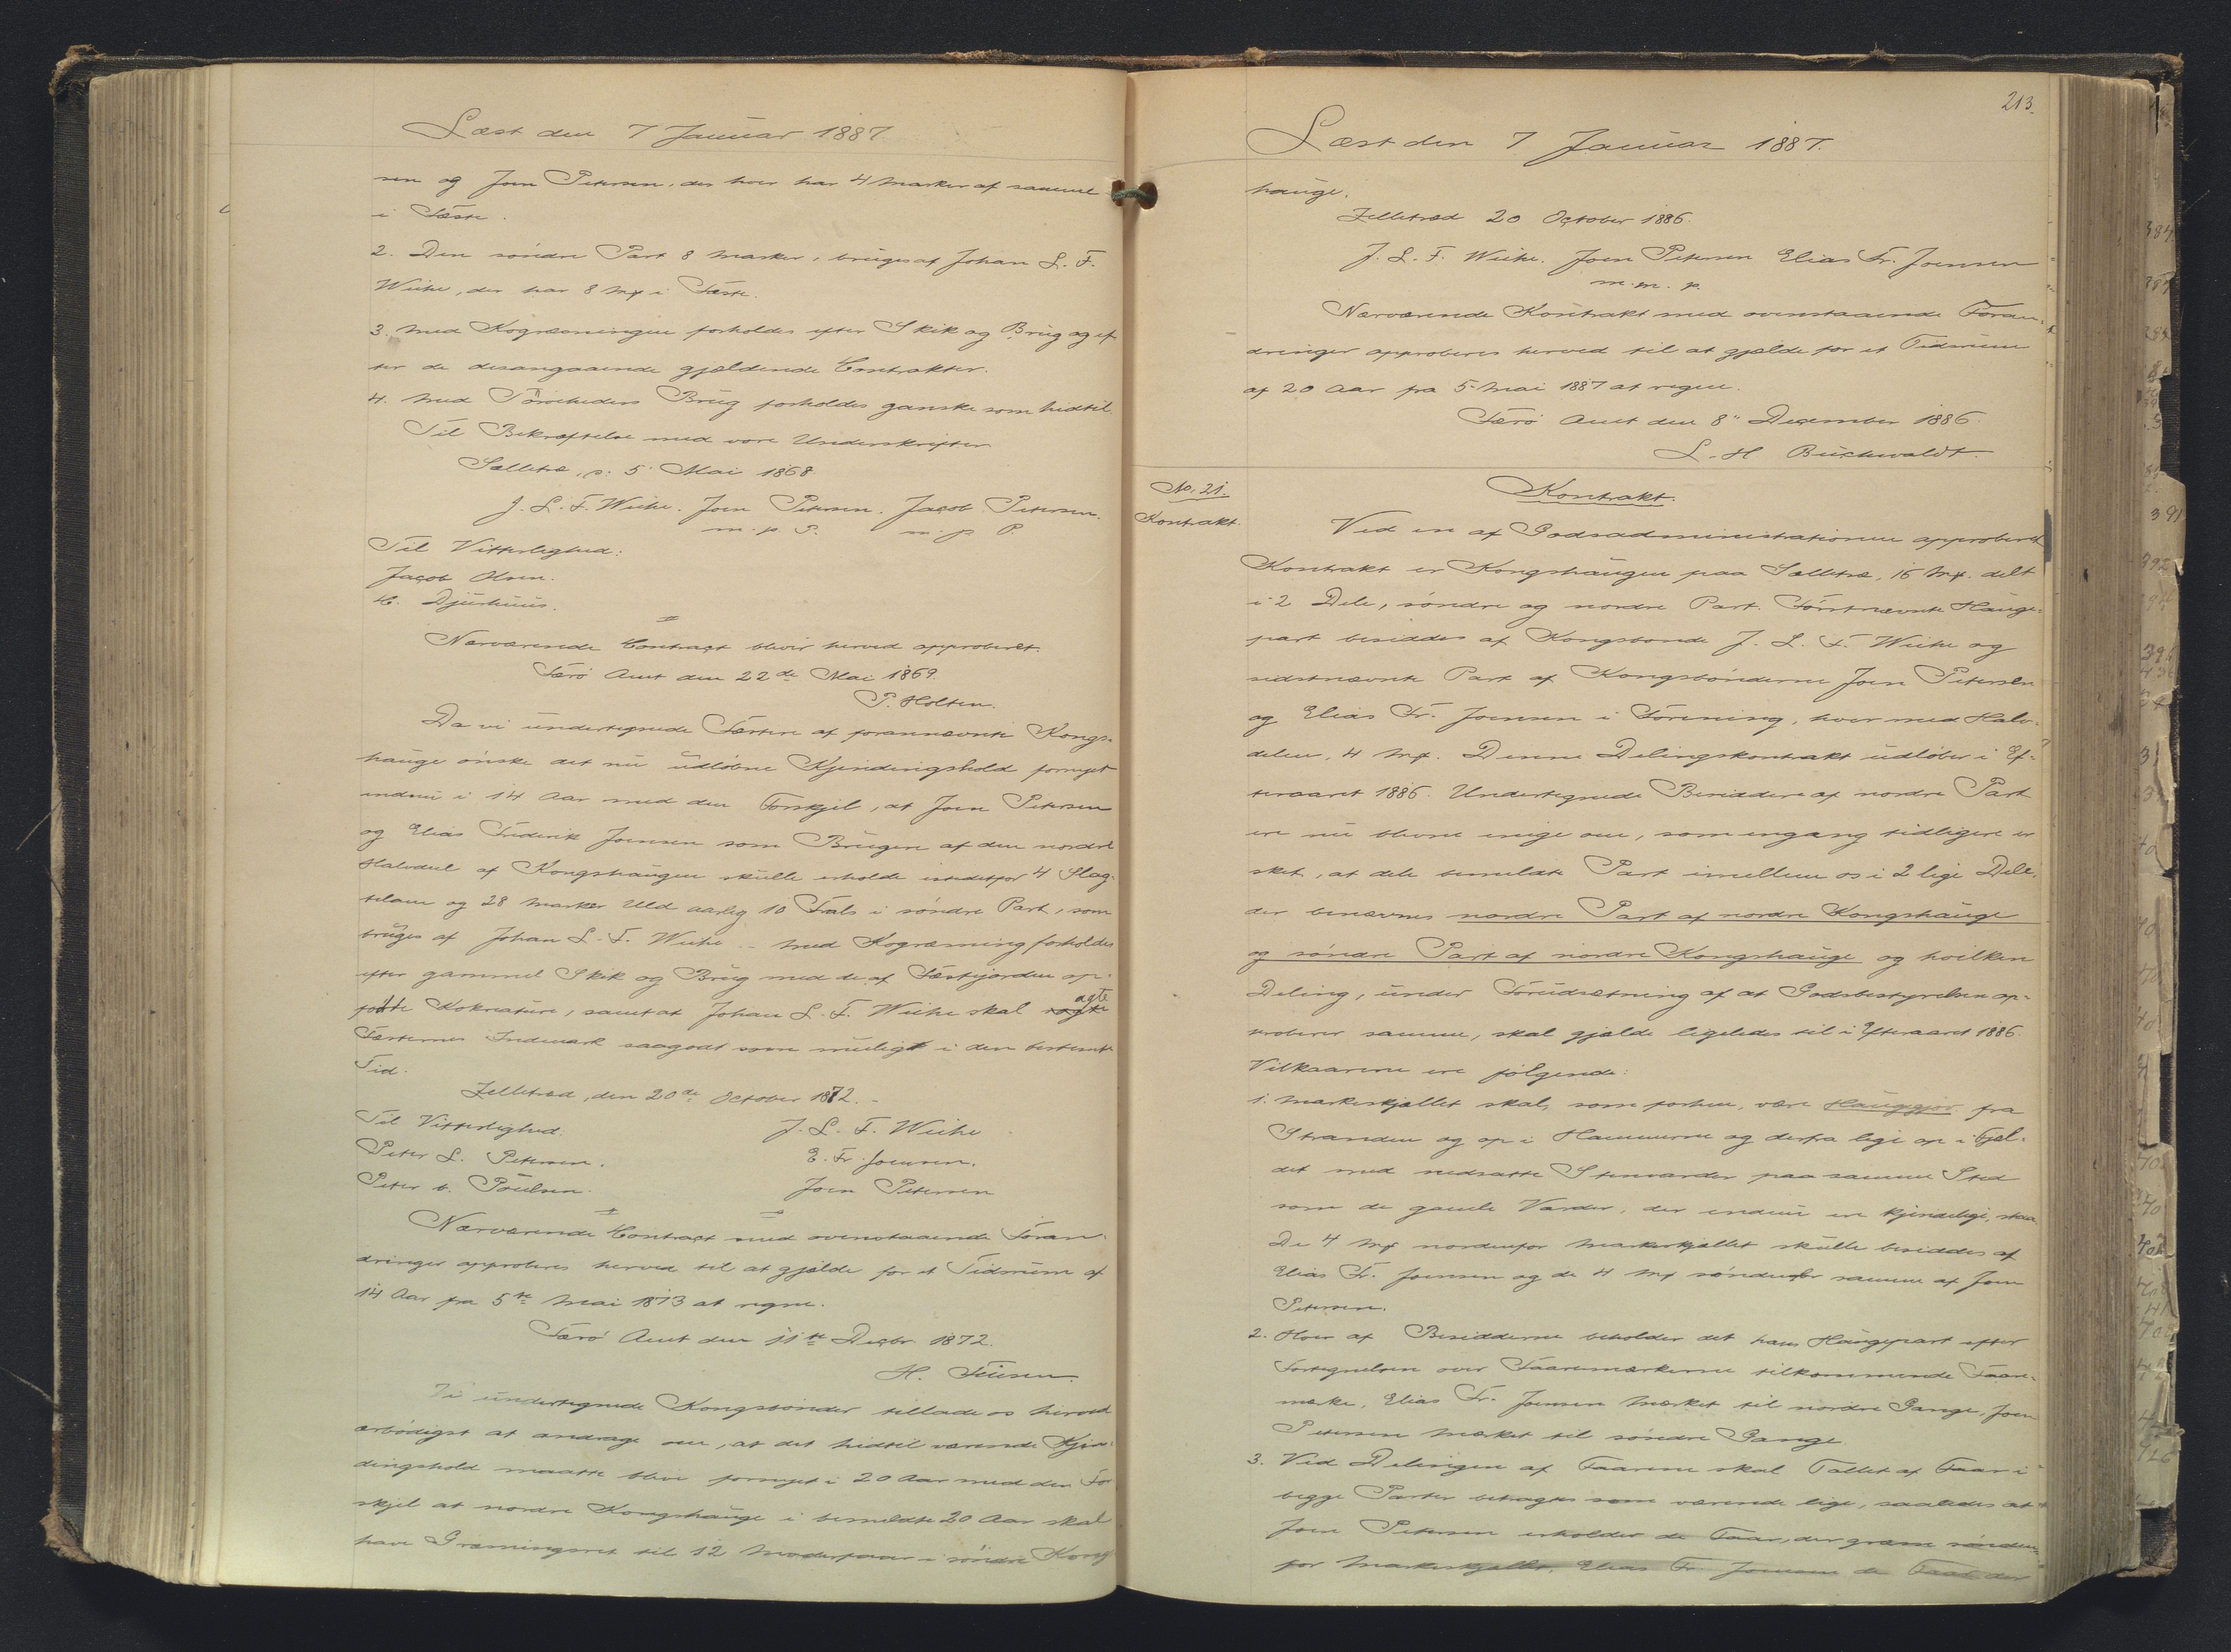 Læst den 7 Januar 1887.
sen og Joen Petersen, der hver har 4 Marker af samme
i Fæste.
2. Den søndre Part 8 Marker, bruges af Johan L. F.
Weihe, der har 8 Mk i Fæste.
3. Med Kogræsningen forholdes efter Skik og Brug og ef-
ter de desangaaende gjældende Contrakter.
4. Med Tørveheders Brug forholdes ganske som hidtil.
Til Bekræftelse med vore Underskrifter
Selletræ, p: 5' Mai 1868
J. L. F. Weihe. Joen Petersen. Jacob Petersen.
m. p. P. m. p. P.
Til Vitterlighed:
Jacob Olsen.
H. Djurhuus.
Nærværende Contract bliver herved approberet.
Færø Amt den 22de Mai 1869.
P. Holten.
Da vi undertegnede Fæstere af forannævnte Kongs-
hauge ønske det nu udløbne Kjendingshold fornyet
endnu i 14 Aar med den Forskjel, at Joen Petersen
og Elias Frederik Joensen som Brugere af den nordre
Halvdeel af Kongshaugen skulle erholde istedetfor 4 Slag-
telam og 28 Marker Uld aarlig 10 Fæls i søndre Part, som
bruges af Johan L. F. Weihe – Med Kogræsning forholdes
efter gammel Skik og Brug med de af Fæstejorden op-
fødte Kokreature, samt at Johan L. F. Weihe skal agte
Fæsternes Indmark saagodt som muligt i den bestemte
Tid.
Zelletræd, den 20de October 1872.-
Til Vitterlighed. J. L. F. Weihe
Peter L. Petersen. E. Fr. Joensen.
Peter b. Poulsen. Joen Petersen
Nærværende Contract med ovenstaaende Foran-
dringer approberes herved til at gjælde for et Tidsrum af
14 Aar fra 5te Mai 1873 at regne.
Færø Amt den 11te Decbr. 1872.
H. Finsen.
Vi undertegnede Kongsbønder tillade os herved
ærbødigst at andrage om, at det hidtil værende Kjen-
dingshold maatte blive fornyet i 20 Aar med den For
skjel at nordre Kongshauge i bemeldte 20 Aar skal
have Græsningsret til 12 Moderfaar i søndre Kongs
213.
Læst den 7 Januar 1887.
hauge.
Zelletræd 20 October 1886.
J. L. F. Weihe. Joen Petersen Elias Fr. Joensen
m. m. p.
Nærværende Kontrakt med ovenstaaende Foran-
dringer approberes herved til at gjælde for et Tidsrum
af 20 Aar fra 5 Mai 1887 at regne.
Færø Amt den 8" December 1886
L. H Buchwaldt.
No. 21.
Kontrakt.
Kontrakt.
Ved en af Godsadministrationen approberet
Kontrakt er Kongshaugen paa Selletræ, 16 Mk. delt
i 2 Dele, søndre og nordre Part. Førstnævnte Hauge-
part besiddes af Kongsbonde J. L. F. Weihe og
sidstnævnte Part af Kongsbønderne Joen Petersen
og Elias Fr. Joensen i Forening, hver med Halv-
delen, 4 Mk. Denne Delingskontrakt udløber i Ef-
teraaret 1886. Undertegnede Besiddere af nordre Part
ere nu blevne enige om, som engang tidligere er
sket, at dele bemeldte Part imellem os i 2 lige Dele,
der benævnes nordre Part af nordre Kongshauge
og søndre Part af nordre Kongshauge og hvilken
Deling, under Forudsætning af at Godsbestyrelsen ap-
proberer samme, skal gjælde ligeledes til i Efteraaret 1886.
Vilkaarene ere følgende:
1. Markeskjællet skal, som forhen, være Hauggjov fra
Stranden og op i Hammerne og derfra lige op i Fjel-
det med nedsatte Stenvarder paa samme Sted
som de gamle Varder, der endnu ere kjendelige, staa.
De 4 Mk nordenfor Markeskjællet skulle besiddes af
Elias Fr. Joensen og de 4 Mk søndenfor samme af Joen
Petersen.
2. Hver af Besidderne beholder det hans Haugepart efter
Fortegnelsen over Faaremærkerne tilkommende Faare-
mærke, Elias Fr. Joensen Mærket til nordre Gange, Joen
Petersen Mærket til søndre Gange
3. Ved Delingen af Faarene skal Tallet af Faar i
begge Parter betragtes som værende lige, saaledes at
Joen Petersen erholder de Faar, der græsse sønden-
for Markeskjællet, Elias Fr. Joensen de Faar der